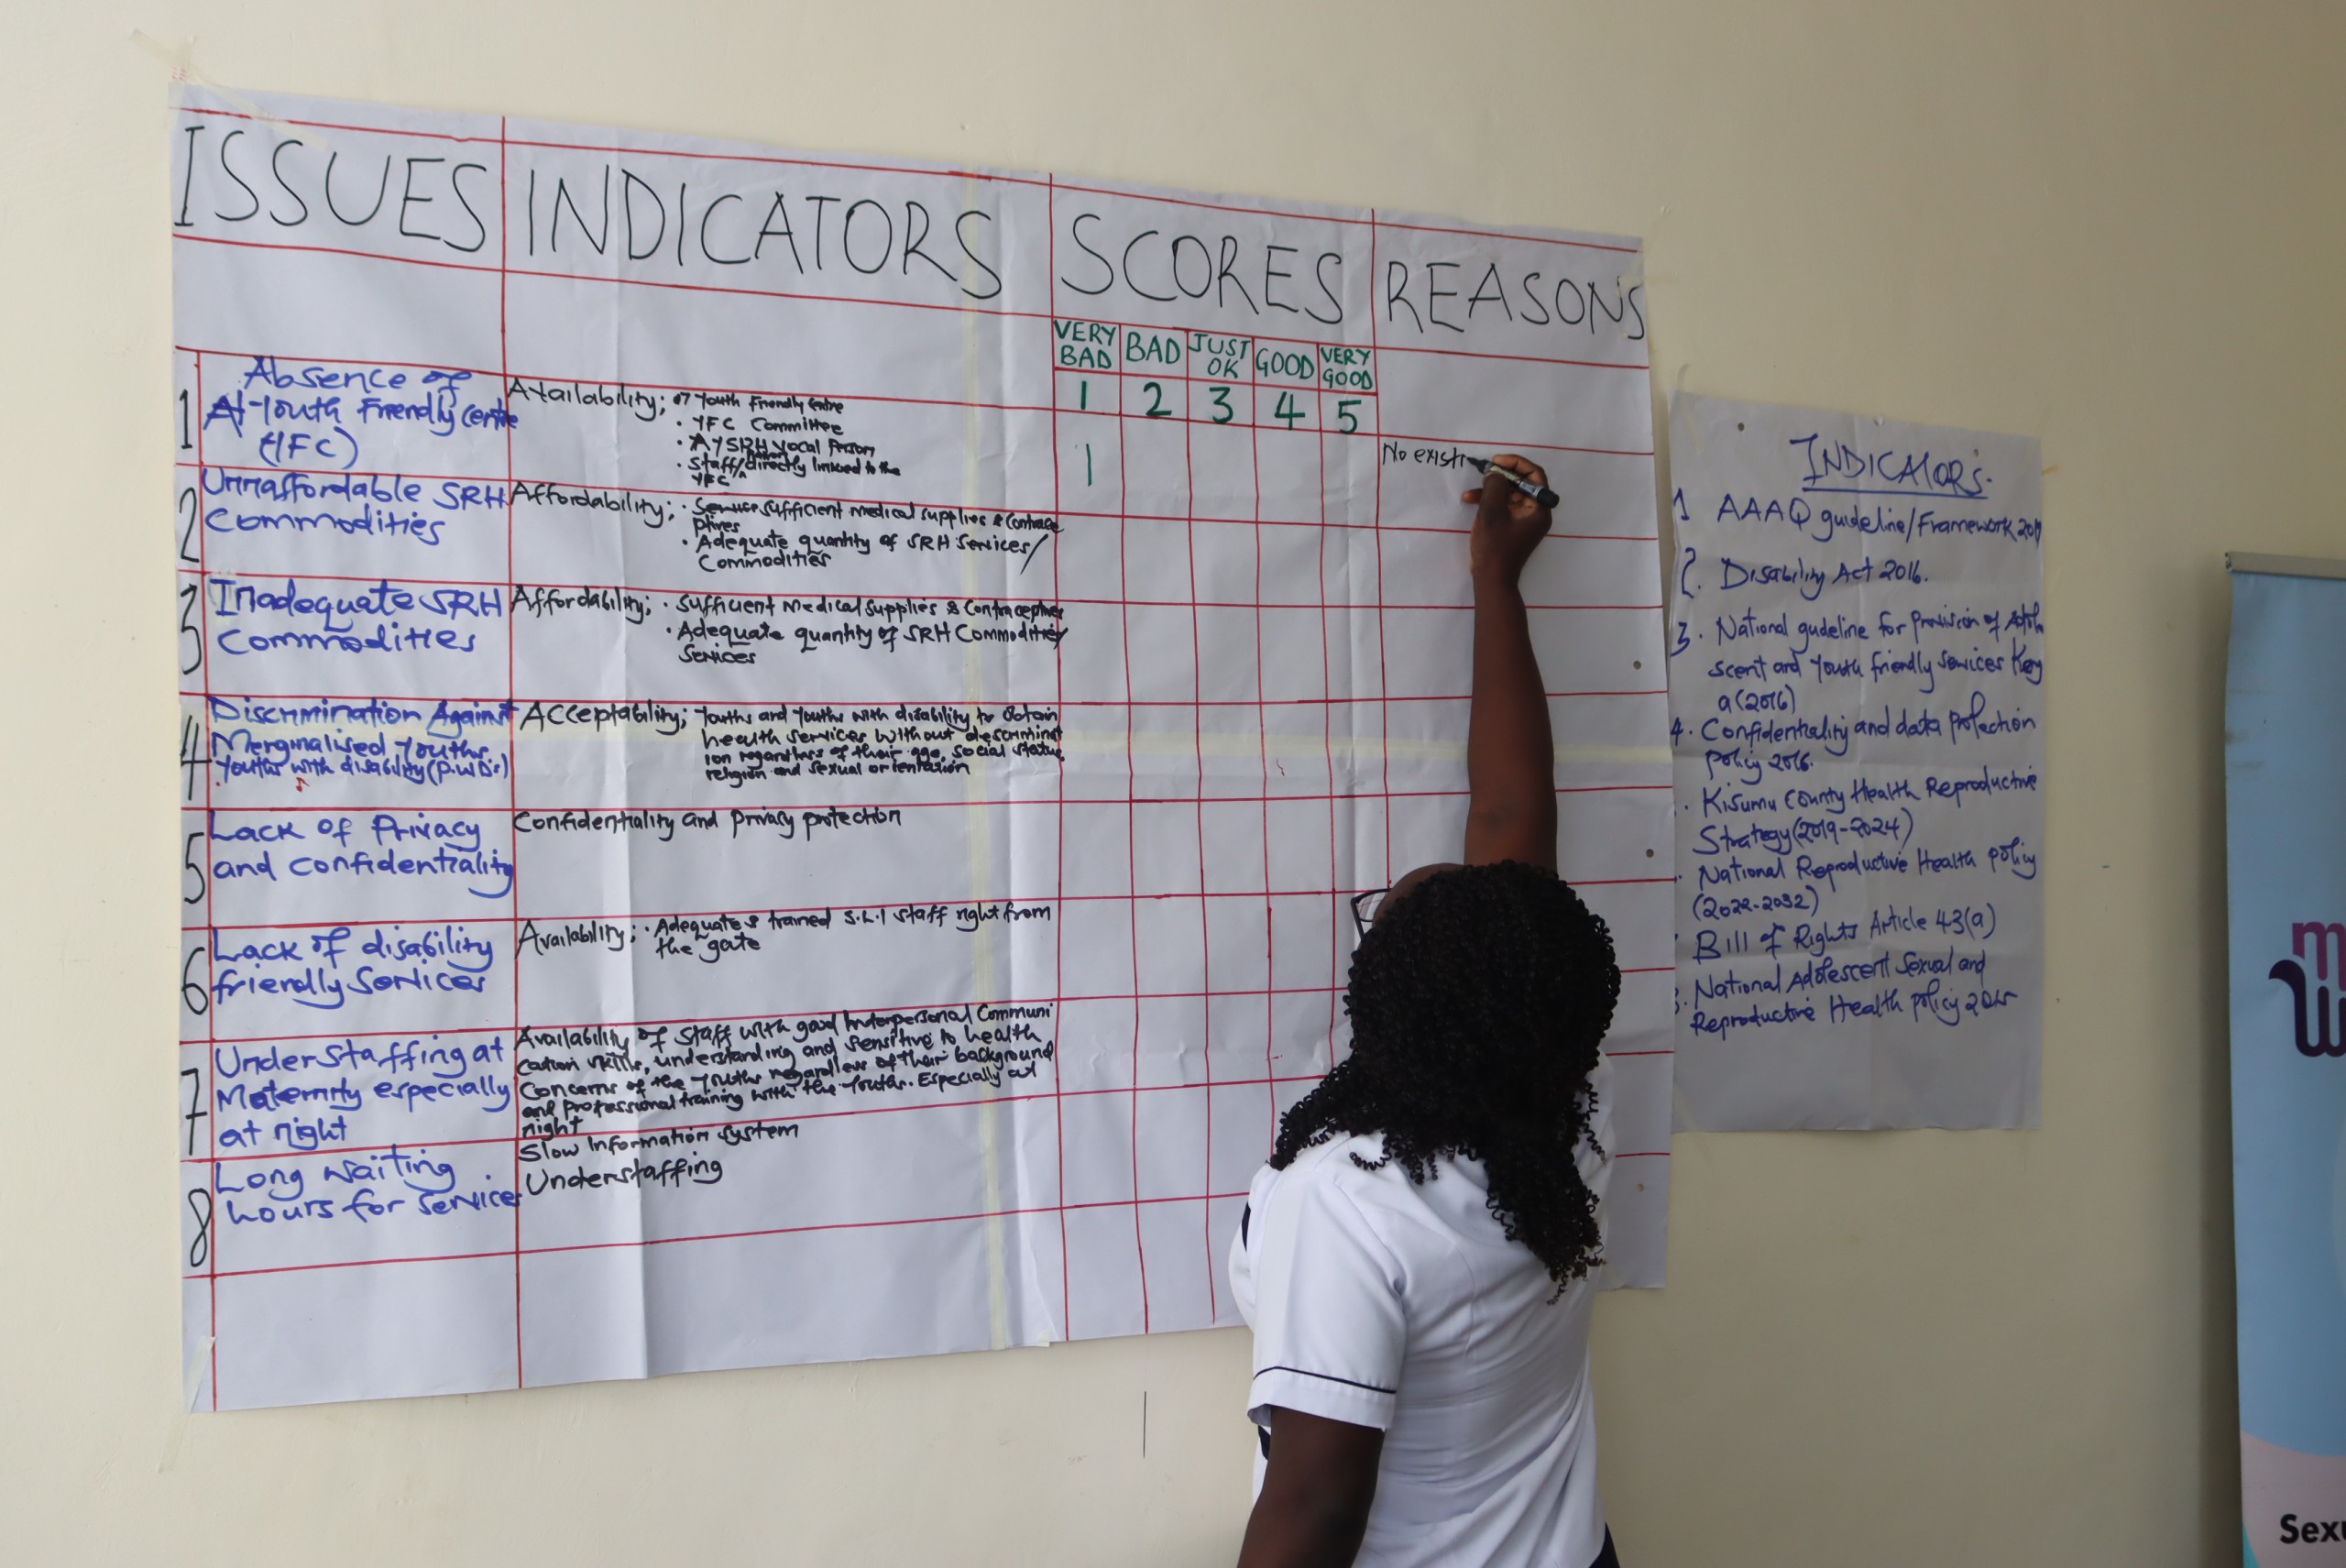 ISSUES
INDICATORS
SCORES
REASONS
VERY BAD
BAD
JUST OK
GOOD
VERY GOOD
1
2
3
4
5
1
Absence of
A Youth Friendly Centre
(YFC)
Availability; of Youth Friendly Centre
• YFC Committee
• AYSRH Focal Person
• Staff/ directly linked to the
YFC
1
No exist
2
Unnaffordable SRH
Commodities
Affordability; • sufficient medical supplies & Contrace
ptives
• Adequate quantity of SRH Services/
Commodities
3
Inadequate SRH
Commodities
Affordability; • Sufficient Medical Supplies & Contraceptives
• Adequate quantity of SRH Commodities/
Services
4
Discrimination Against
Merginalised Youths,
Youths with disability (P.W.D's)
Acceptability; Youths and Youths with disability to Obtain
health services without descriminat
ion regardless of their age, social status,
religion and sexual orientation
5
Lack of Privacy
and confidentiality
Confidentiality and Privacy protection
6
Lack of disability
friendly Services
Availability; • Adequate & trained S.L.I staff right from
the gate
7
Under Staffing at
Maternity especially
at night
Availability of Staff with good Interpersonal Communi
cation skills, understanding and sensitive to health
Concerns of the Youths regardless of their background
and professional training with the Youths. Especially at
night
8
Long waiting
hours for Services
Slow Information system
Understaffing
INDICATORS.
1 AAAQ guideline/Framework 2019
2. Disability Act 2016.
3. National gudeline for provision of Adole
scent and Youth friendly services Keny
a (2016)
4. Confidentiality and data protection
policy 2016.
. Kisumu County Health Reproductive
Strategy (2019-2024)
. National Reproductive Health policy
(2022-2032)
Bill of Rights Article 43(a)
. National Adolescent Sexual and
Reproductive Health policy 2015
m
w
Sexu